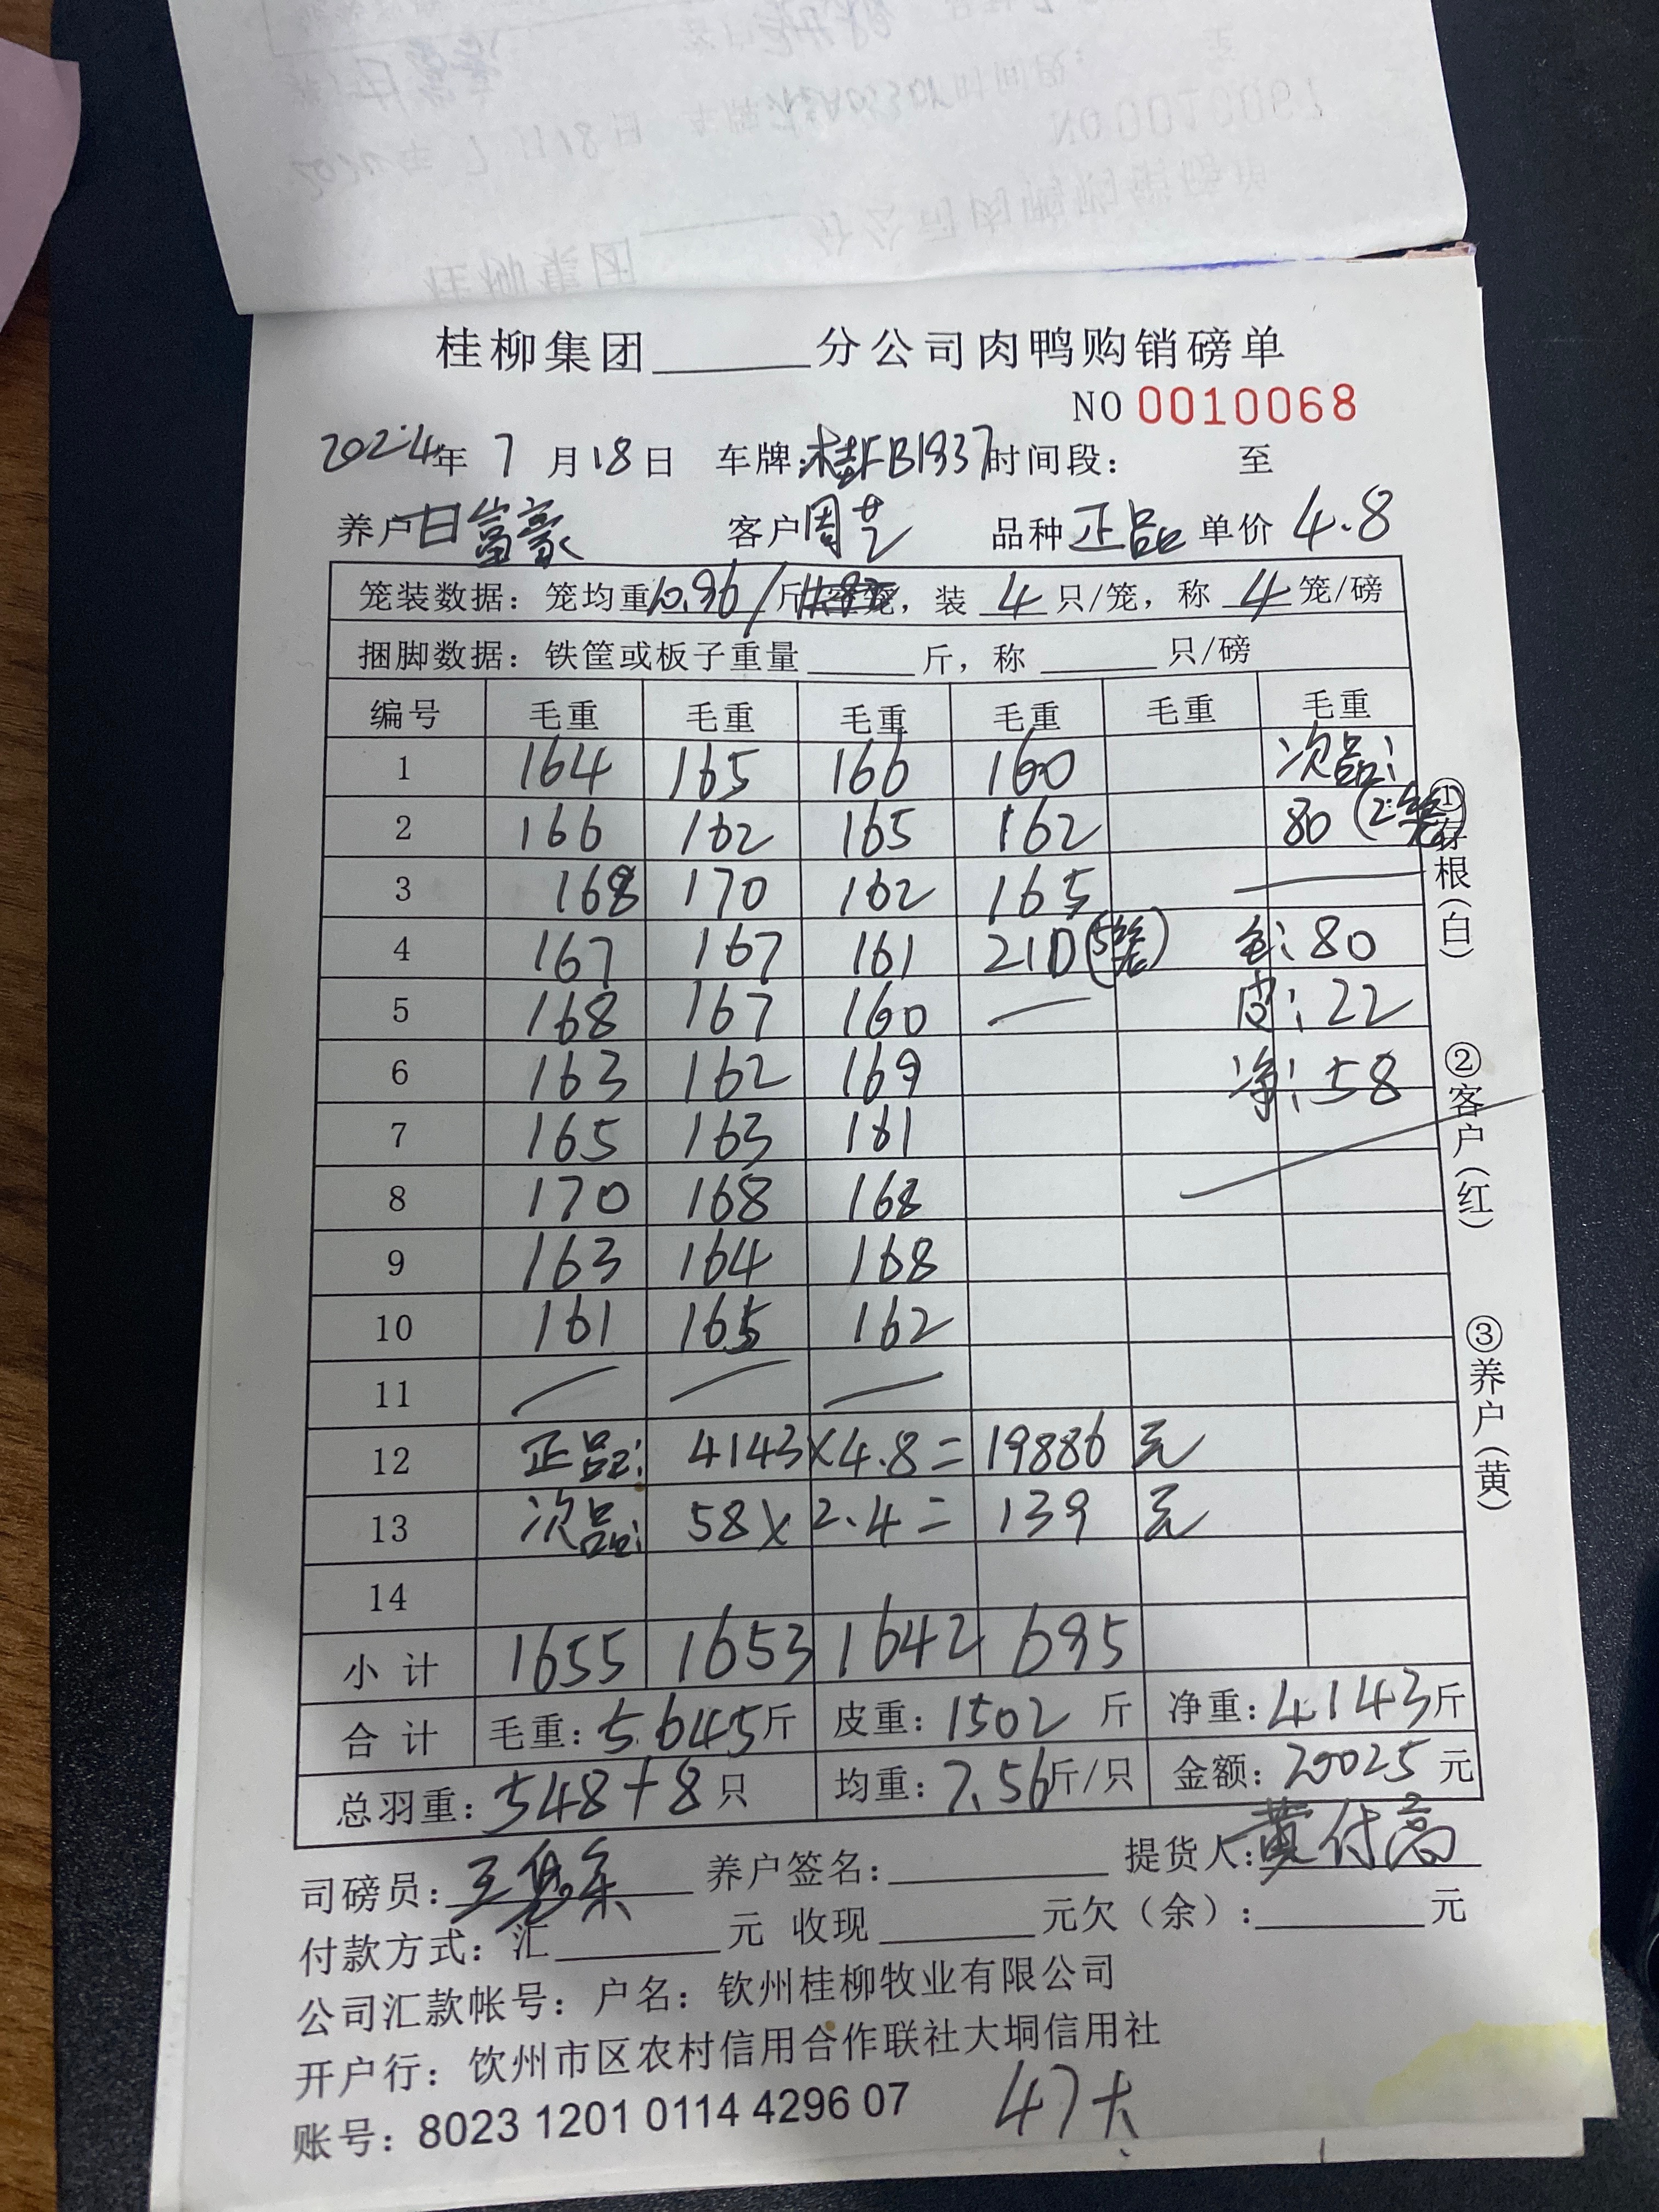 桂柳集团______分公司肉鸭购销磅单
NO 0010068
2024年 7 月 18 日 车牌:桂FB1937 时间段: 至
养户 甘富豪 客户 周芝 品种 正品 单价 4.8
笼装数据: 笼均重 10.96/斤, 装 4 只/笼, 称 4 笼/磅
捆脚数据: 铁筐或板子重量______斤, 称______只/磅
编号 毛重 毛重 毛重 毛重 毛重 毛重
1 164 165 166 160 次品:
2 166 162 165 162 80 (2笼)
3 168 170 162 165
4 167 167 161 210 (5笼) 毛: 80
5 168 167 160 — 皮: 22
6 163 162 169 净: 58
7 165 163 161
8 170 168 168
9 163 164 168
10 161 165 162
11
12 正品: 4143×4.8= 19886 元
13 次品: 58×2.4= 139 元
14
小计 1655 1653 1642 695
合计 毛重: 5645斤 皮重: 1502 斤 净重: 4143斤
总羽重: 548+8 只 均重: 7.56斤/只 金额: 20025 元
司磅员: 养户签名:______ 提货人: 黄付高
付款方式: 汇______元 收现______元欠(余):______元
公司汇款帐号: 户名: 钦州桂柳牧业有限公司
开户行: 饮州市区农村信用合作联社大垌信用社
账号: 8023 1201 0114 4296 07
47天
①存根(白)
②客户(红)
③养户(黄)